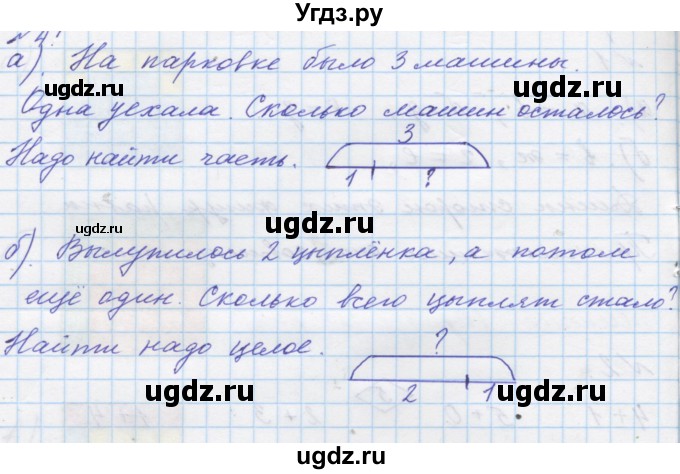 Угдз.ру
№4.
а) На парковке было 3 машины.
Одна уехала. Сколько машин осталось?
Надо найти часть.
3
1 ?
б) Вылупилось 2 цыплёнка, а потом
ещё один. Сколько всего цыплят стало?
Найти надо целое.
?
2 1
ugdz.ru
ugdz.ru
ugdz.ru
ugdz.ru
ugdz.ru
ugdz.ru
ugdz.ru